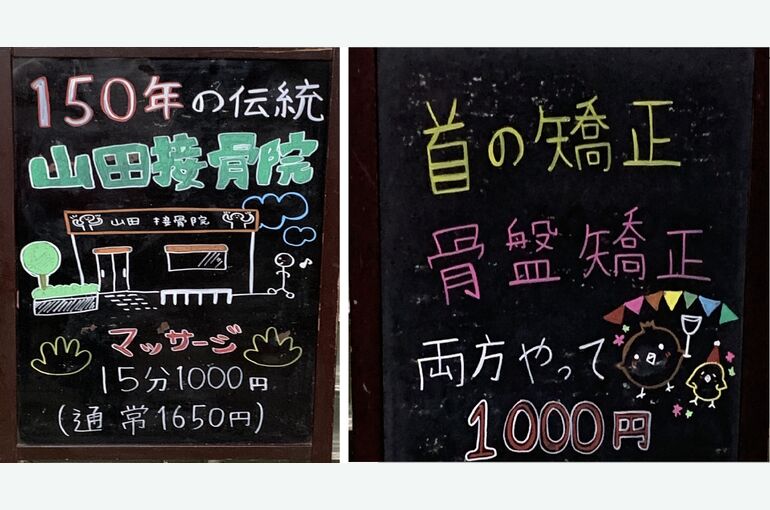 150年の伝統
山田接骨院
山田 接骨院
マッサージ
15分1000円
(通常1650円)
首の矯正
骨盤矯正
両方やって
1000円